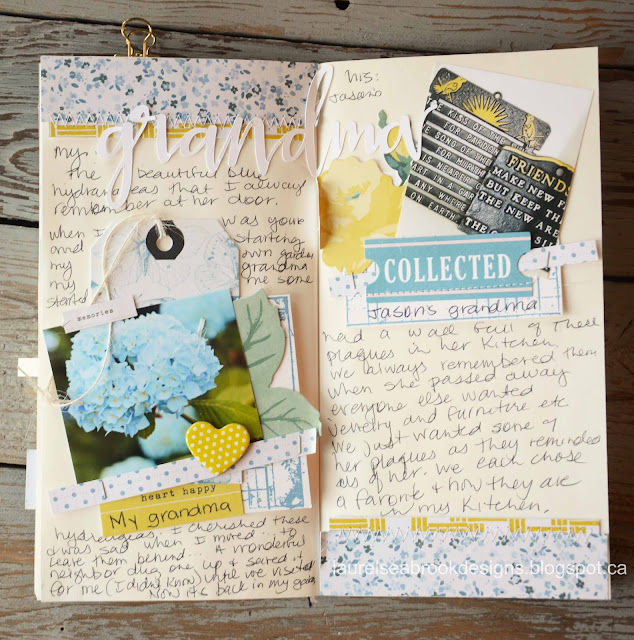 grandma
my
the beautiful blue
hydrangeas that I always
remember at her door.
when I was young
and starting
my own garden
my grandma
started me some
memories
heart happy
My grandma
hydrangeas. I cherished these
& was sad when I moved to
leave them behind... A wonderful
neighbor dug one up & saved it
for me (I didn't know) until we visited
Now it's back in my garden
his:
Jasons
KISS OF
FOR PARDON
SONG OF
FOR MIRTH
IS NEARER
ART IN A GAR
ANY WHERE
ON EARTH
FRIENDS
MAKE NEW F
BUT KEEP TH
THE NEW ARE
THE O SIL
COLLECTED
Jasons grandma
had a wall full of these
plaques in her kitchen.
we always remembered them
when she passed away
everyone else wanted
jewelry and furniture etc
we just wanted some of
her plaques as they reminded
us of her. we each chose
a favorite & now they are
in my kitchen.
laurelseabrookdesigns.blogspot.ca